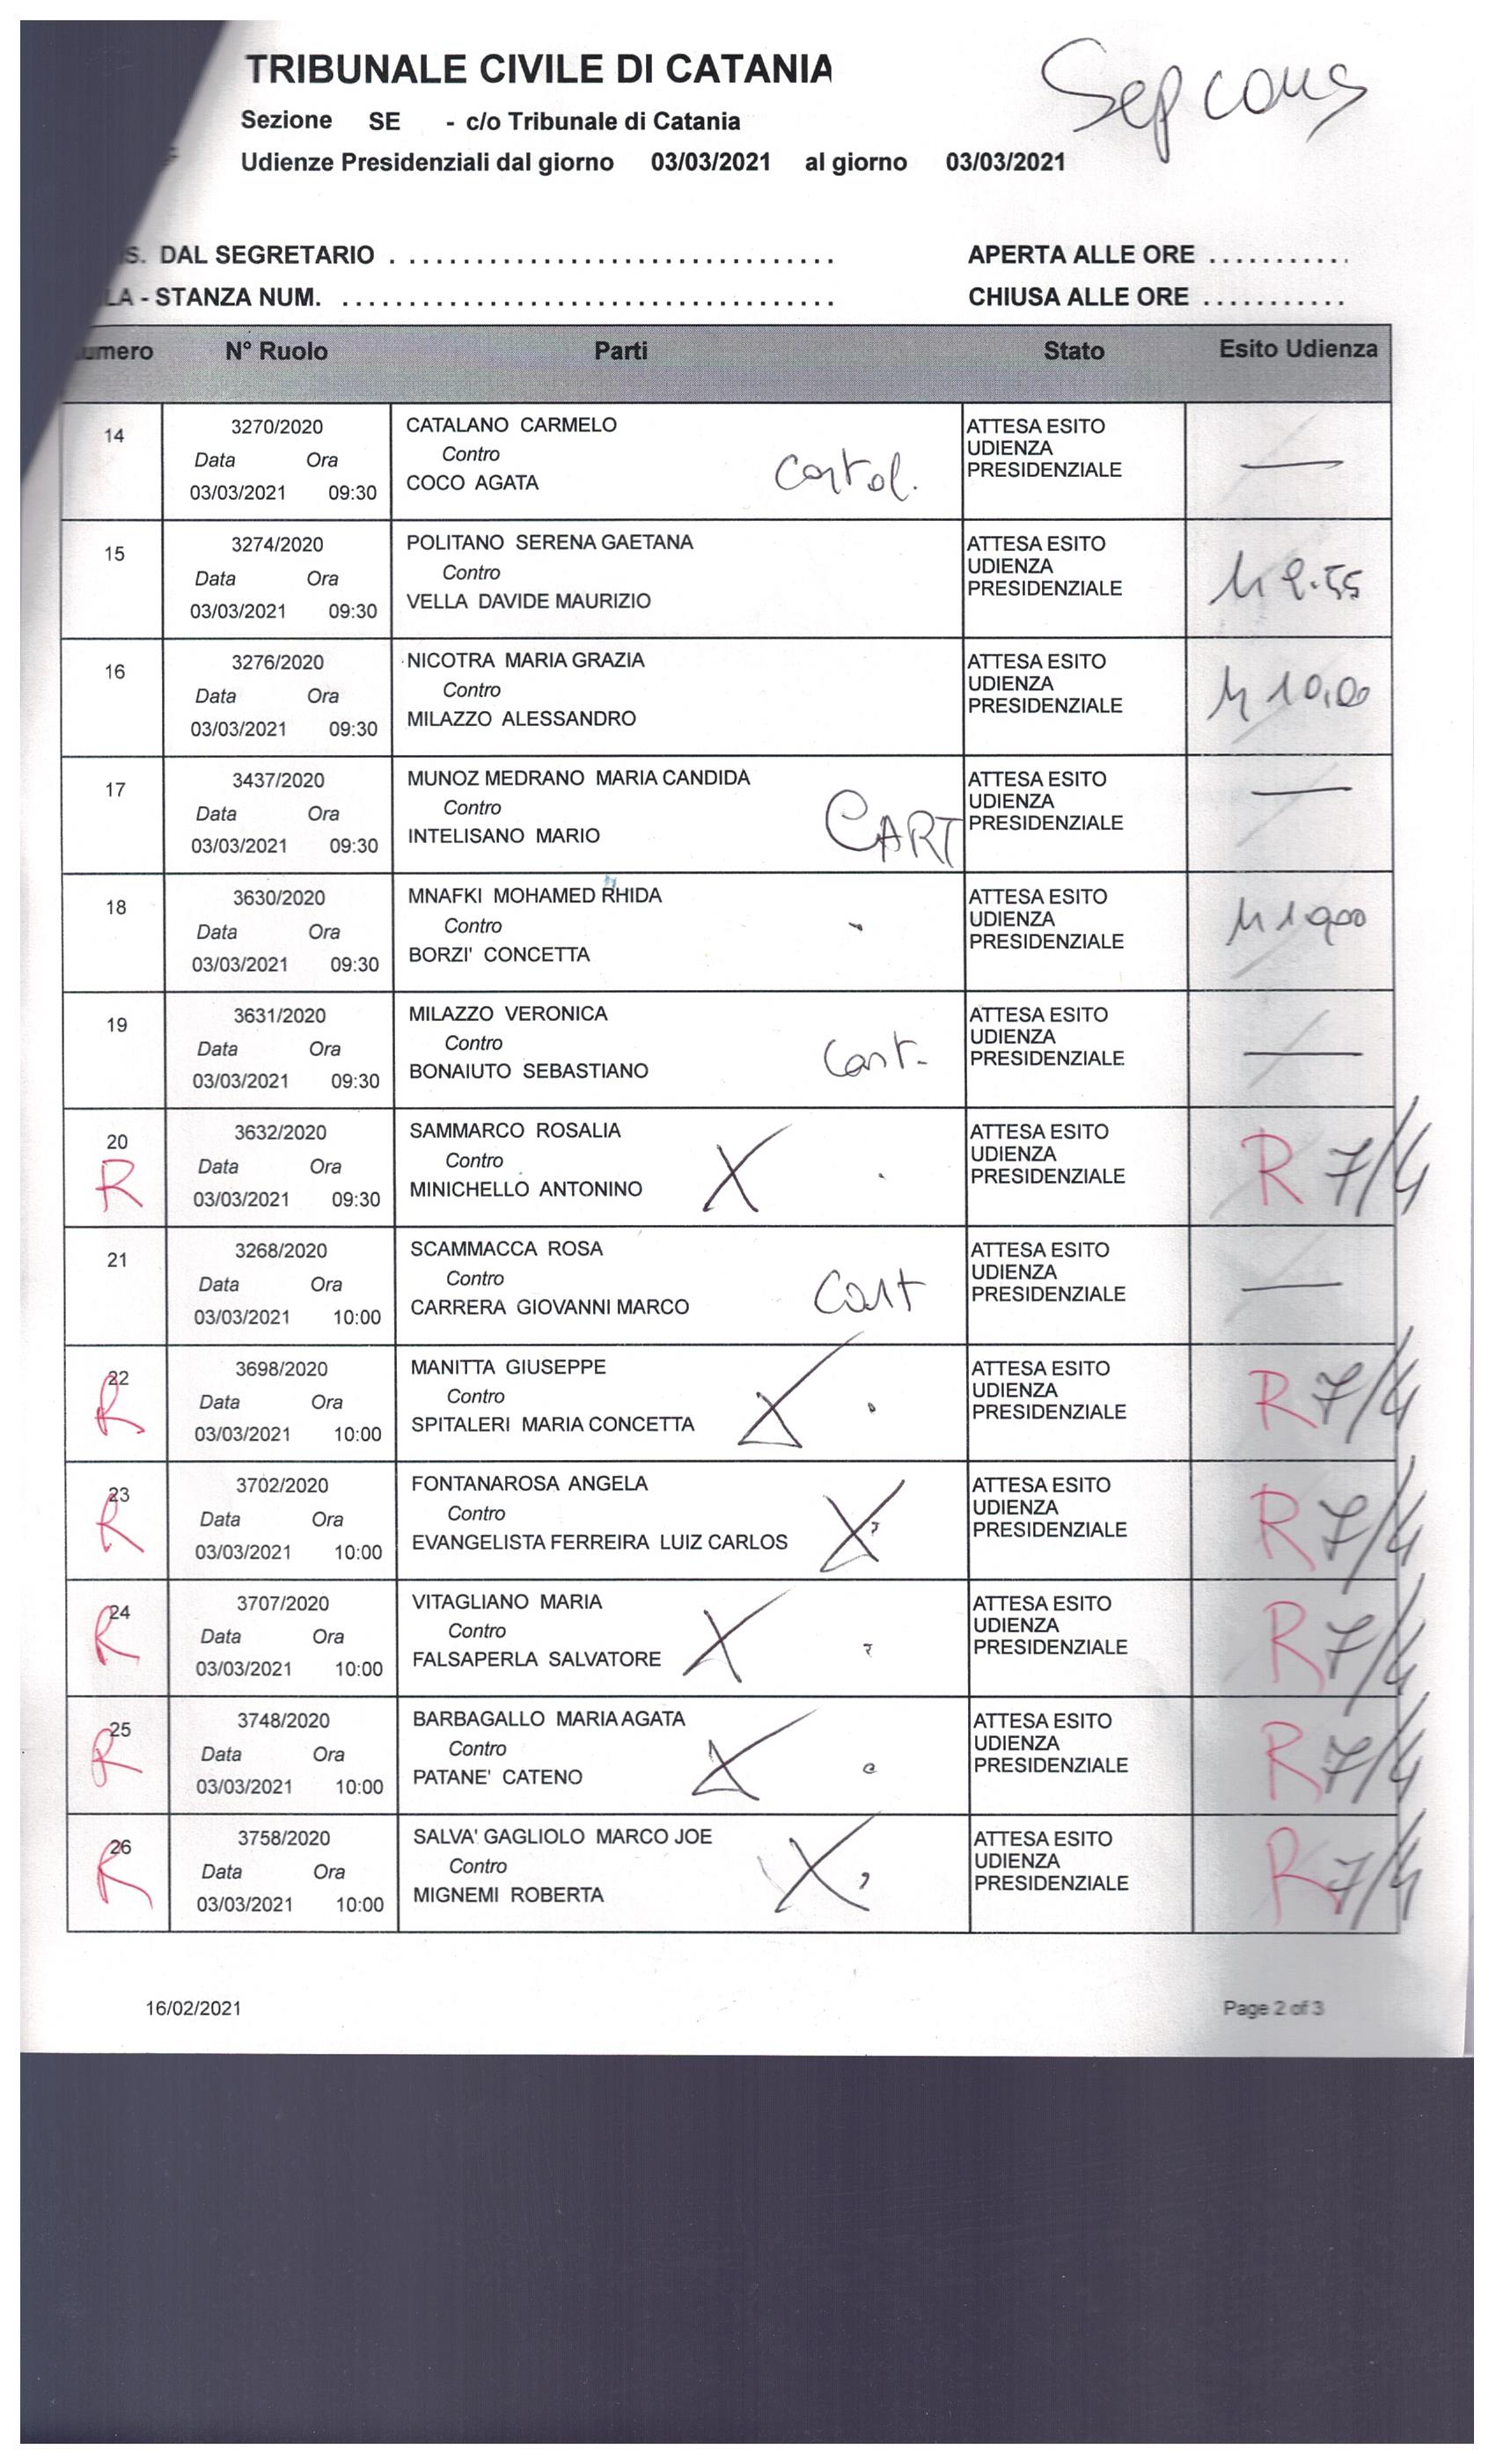 TRIBUNALE CIVILE DI CATANIA
Sep cons
Sezione SE - c/o Tribunale di Catania
Udienze Presidenziali dal giorno 03/03/2021 al giorno 03/03/2021
S. DAL SEGRETARIO .................................. APERTA ALLE ORE ...........
LA - STANZA NUM. .................................. CHIUSA ALLE ORE ...........
umero N° Ruolo Parti Stato Esito Udienza
14 3270/2020 CATALANO CARMELO ATTESA ESITO
Data Ora Contro UDIENZA
03/03/2021 09:30 COCO AGATA Cartol. PRESIDENZIALE —
15 3274/2020 POLITANO SERENA GAETANA ATTESA ESITO
Data Ora Contro UDIENZA
03/03/2021 09:30 VELLA DAVIDE MAURIZIO PRESIDENZIALE 9.55
16 3276/2020 NICOTRA MARIA GRAZIA ATTESA ESITO
Data Ora Contro UDIENZA
03/03/2021 09:30 MILAZZO ALESSANDRO PRESIDENZIALE 10,00
17 3437/2020 MUNOZ MEDRANO MARIA CANDIDA ATTESA ESITO
Data Ora Contro UDIENZA —
03/03/2021 09:30 INTELISANO MARIO CART PRESIDENZIALE
18 3630/2020 MNAFKI MOHAMED RHIDA ATTESA ESITO
Data Ora Contro UDIENZA
03/03/2021 09:30 BORZI' CONCETTA PRESIDENZIALE
19 3631/2020 MILAZZO VERONICA ATTESA ESITO
Data Ora Contro UDIENZA
03/03/2021 09:30 BONAIUTO SEBASTIANO Cart. PRESIDENZIALE —
20 3632/2020 SAMMARCO ROSALIA ATTESA ESITO
R Data Ora Contro X UDIENZA R 7/4
03/03/2021 09:30 MINICHELLO ANTONINO PRESIDENZIALE
21 3268/2020 SCAMMACCA ROSA ATTESA ESITO
Data Ora Contro UDIENZA
03/03/2021 10:00 CARRERA GIOVANNI MARCO Cart PRESIDENZIALE —
22 3698/2020 MANITTA GIUSEPPE ATTESA ESITO
R Data Ora Contro X UDIENZA R 7/4
03/03/2021 10:00 SPITALERI MARIA CONCETTA PRESIDENZIALE
23 3702/2020 FONTANAROSA ANGELA ATTESA ESITO
R Data Ora Contro X UDIENZA R 7/4
03/03/2021 10:00 EVANGELISTA FERREIRA LUIZ CARLOS PRESIDENZIALE
24 3707/2020 VITAGLIANO MARIA ATTESA ESITO
R Data Ora Contro X UDIENZA R 7/4
03/03/2021 10:00 FALSAPERLA SALVATORE PRESIDENZIALE
25 3748/2020 BARBAGALLO MARIA AGATA ATTESA ESITO
R Data Ora Contro X UDIENZA R 7/4
03/03/2021 10:00 PATANE' CATENO PRESIDENZIALE
26 3758/2020 SALVA' GAGLIOLO MARCO JOE ATTESA ESITO
R Data Ora Contro X UDIENZA R 7/4
03/03/2021 10:00 MIGNEMI ROBERTA PRESIDENZIALE
16/02/2021 Page 2 of 3